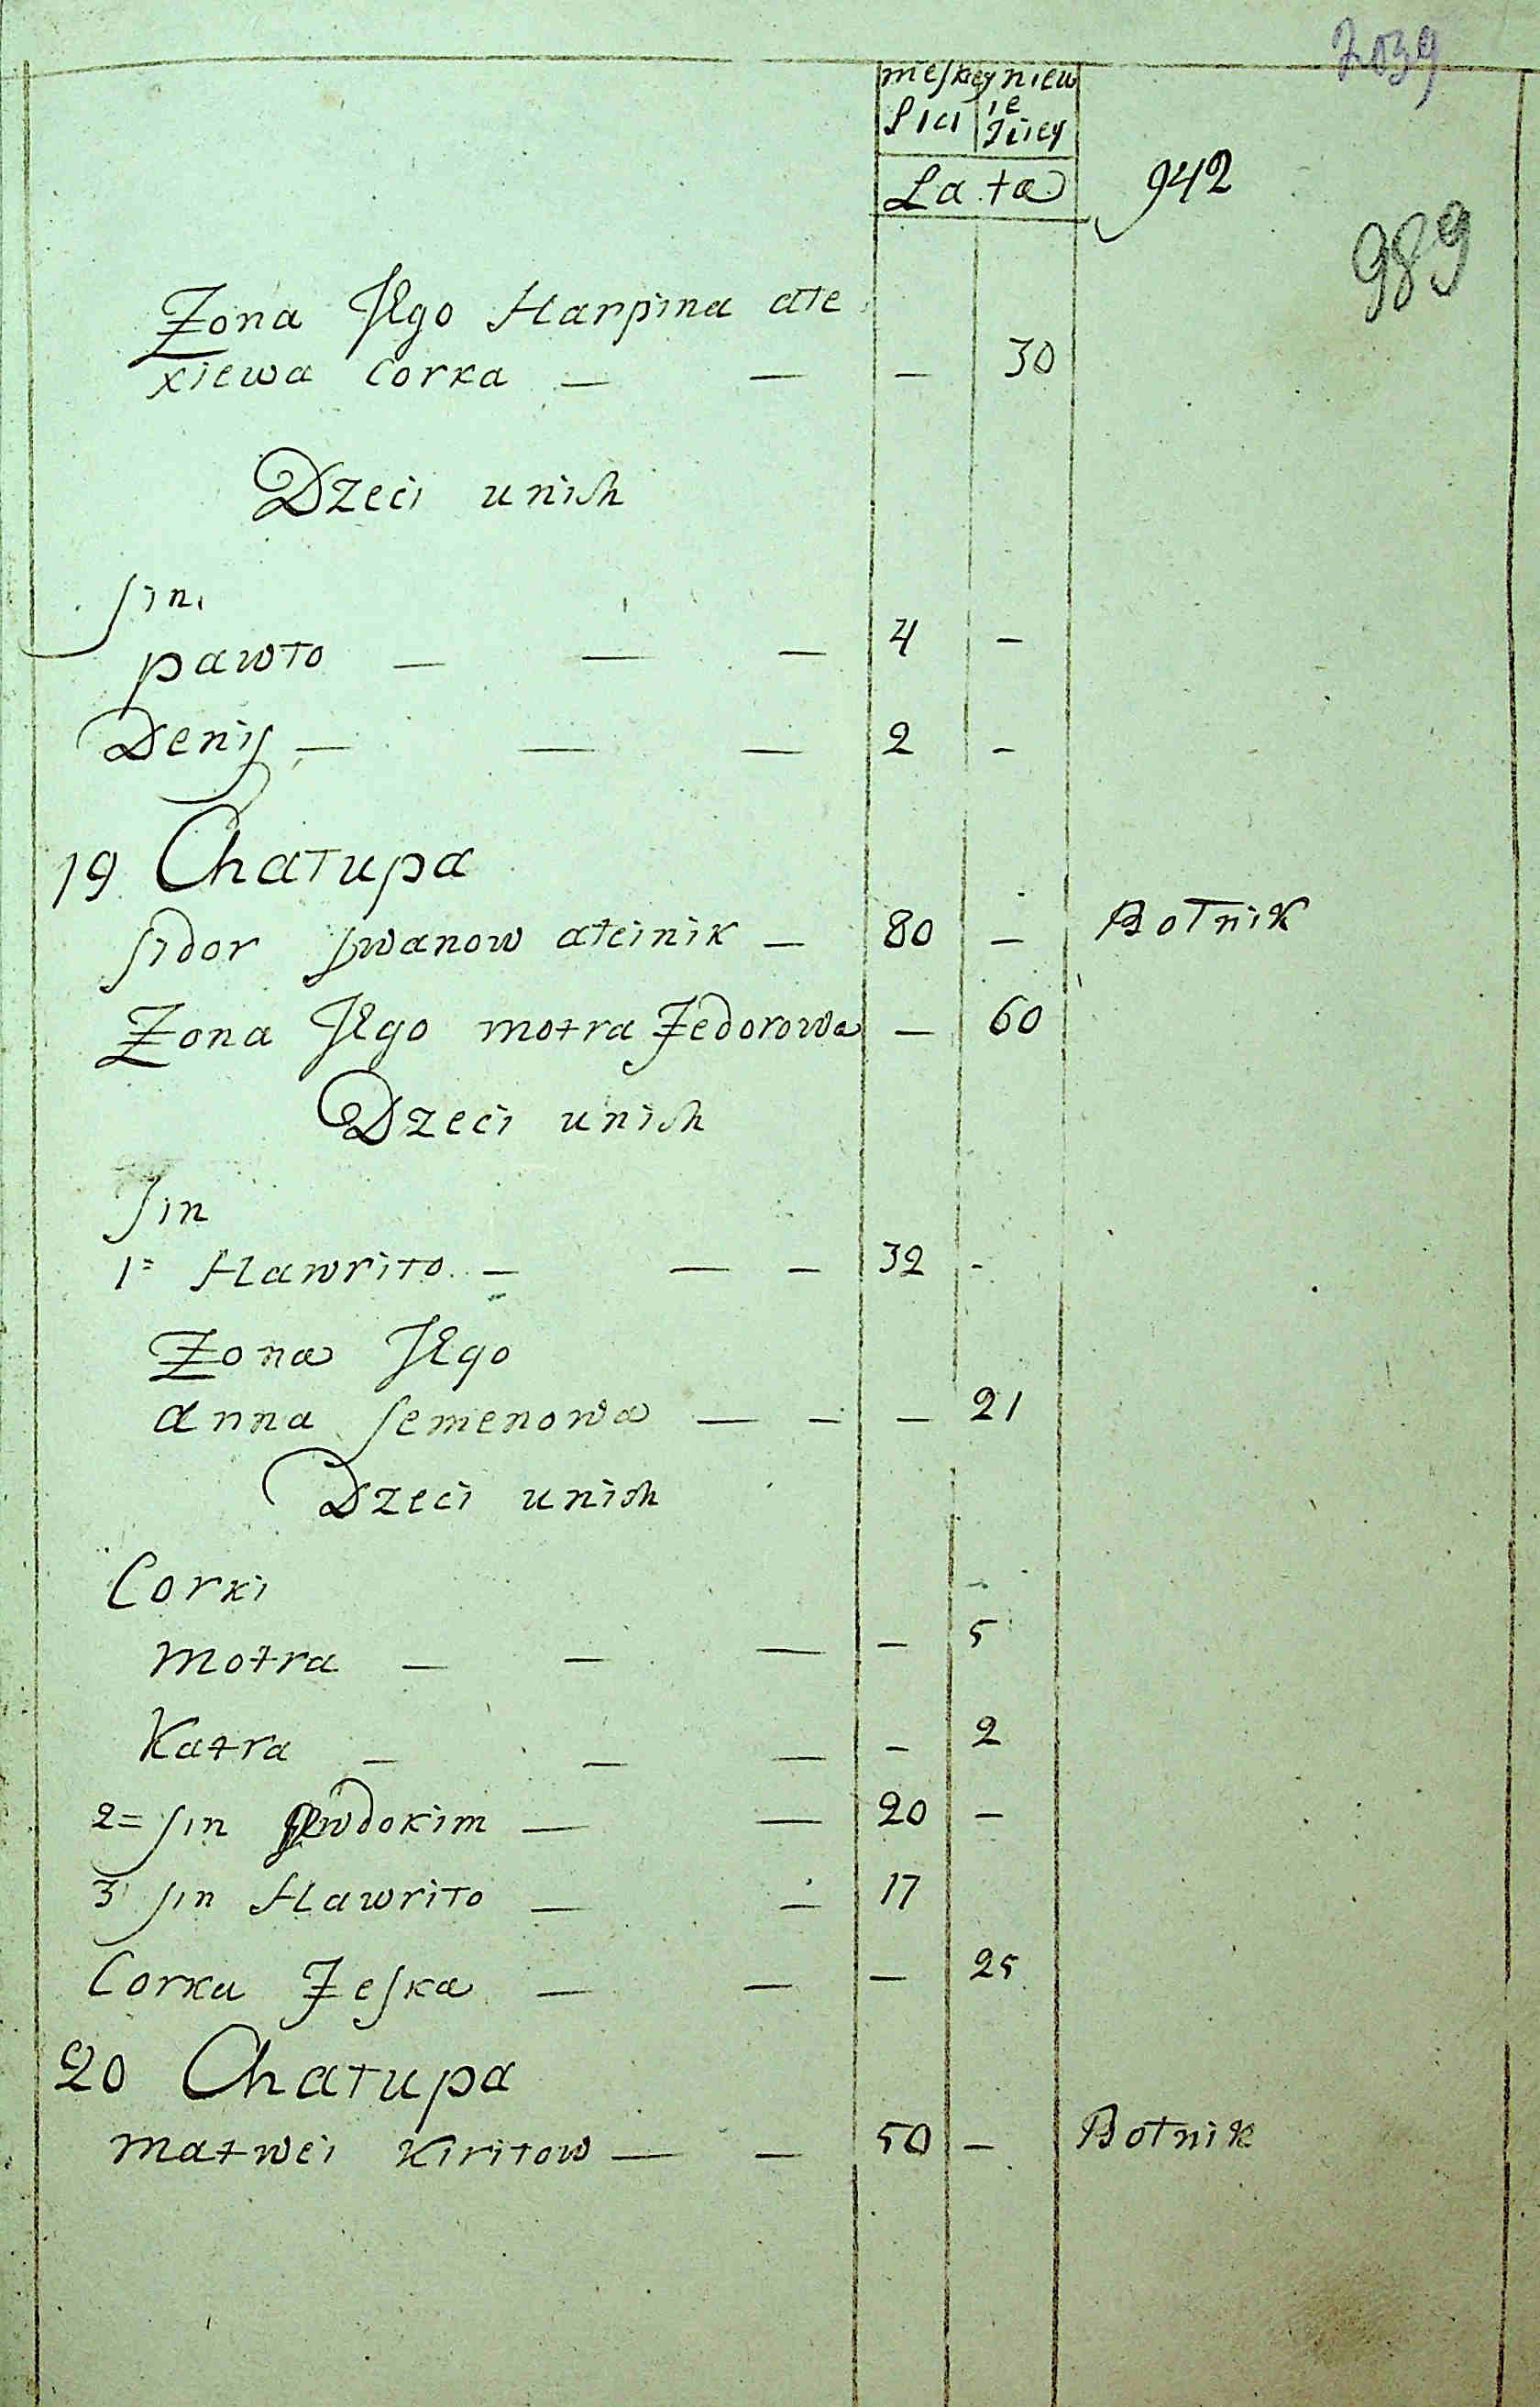 2039
meskey niew
Płci ie
Zkiey
Lata
942
989
Zona Jego Harpina ałe
xiewa Corka — — — 30
Dzeci unich
Sin
pawło — — — 4 —
Denis — — — 2 —
19 Chałupa
Sidor Iwanow ałeinik — 80 — Bołnik
Zona Jego motra Fedorowa — 60
Dzeci unich
Sin
1= Hawriło — — — 32 -
Zona Jego
anna Semenowa — — — 21
Dzeci unich
Corki
motra — — — — 5
Katra — — — — 2
2= Sin Jewdokim — — 20 —
3 Sin Hawriło — — 17
Corka Feska — — — 25
20 Chałupa
matwei Kiriłow — — 50 — Bołnik